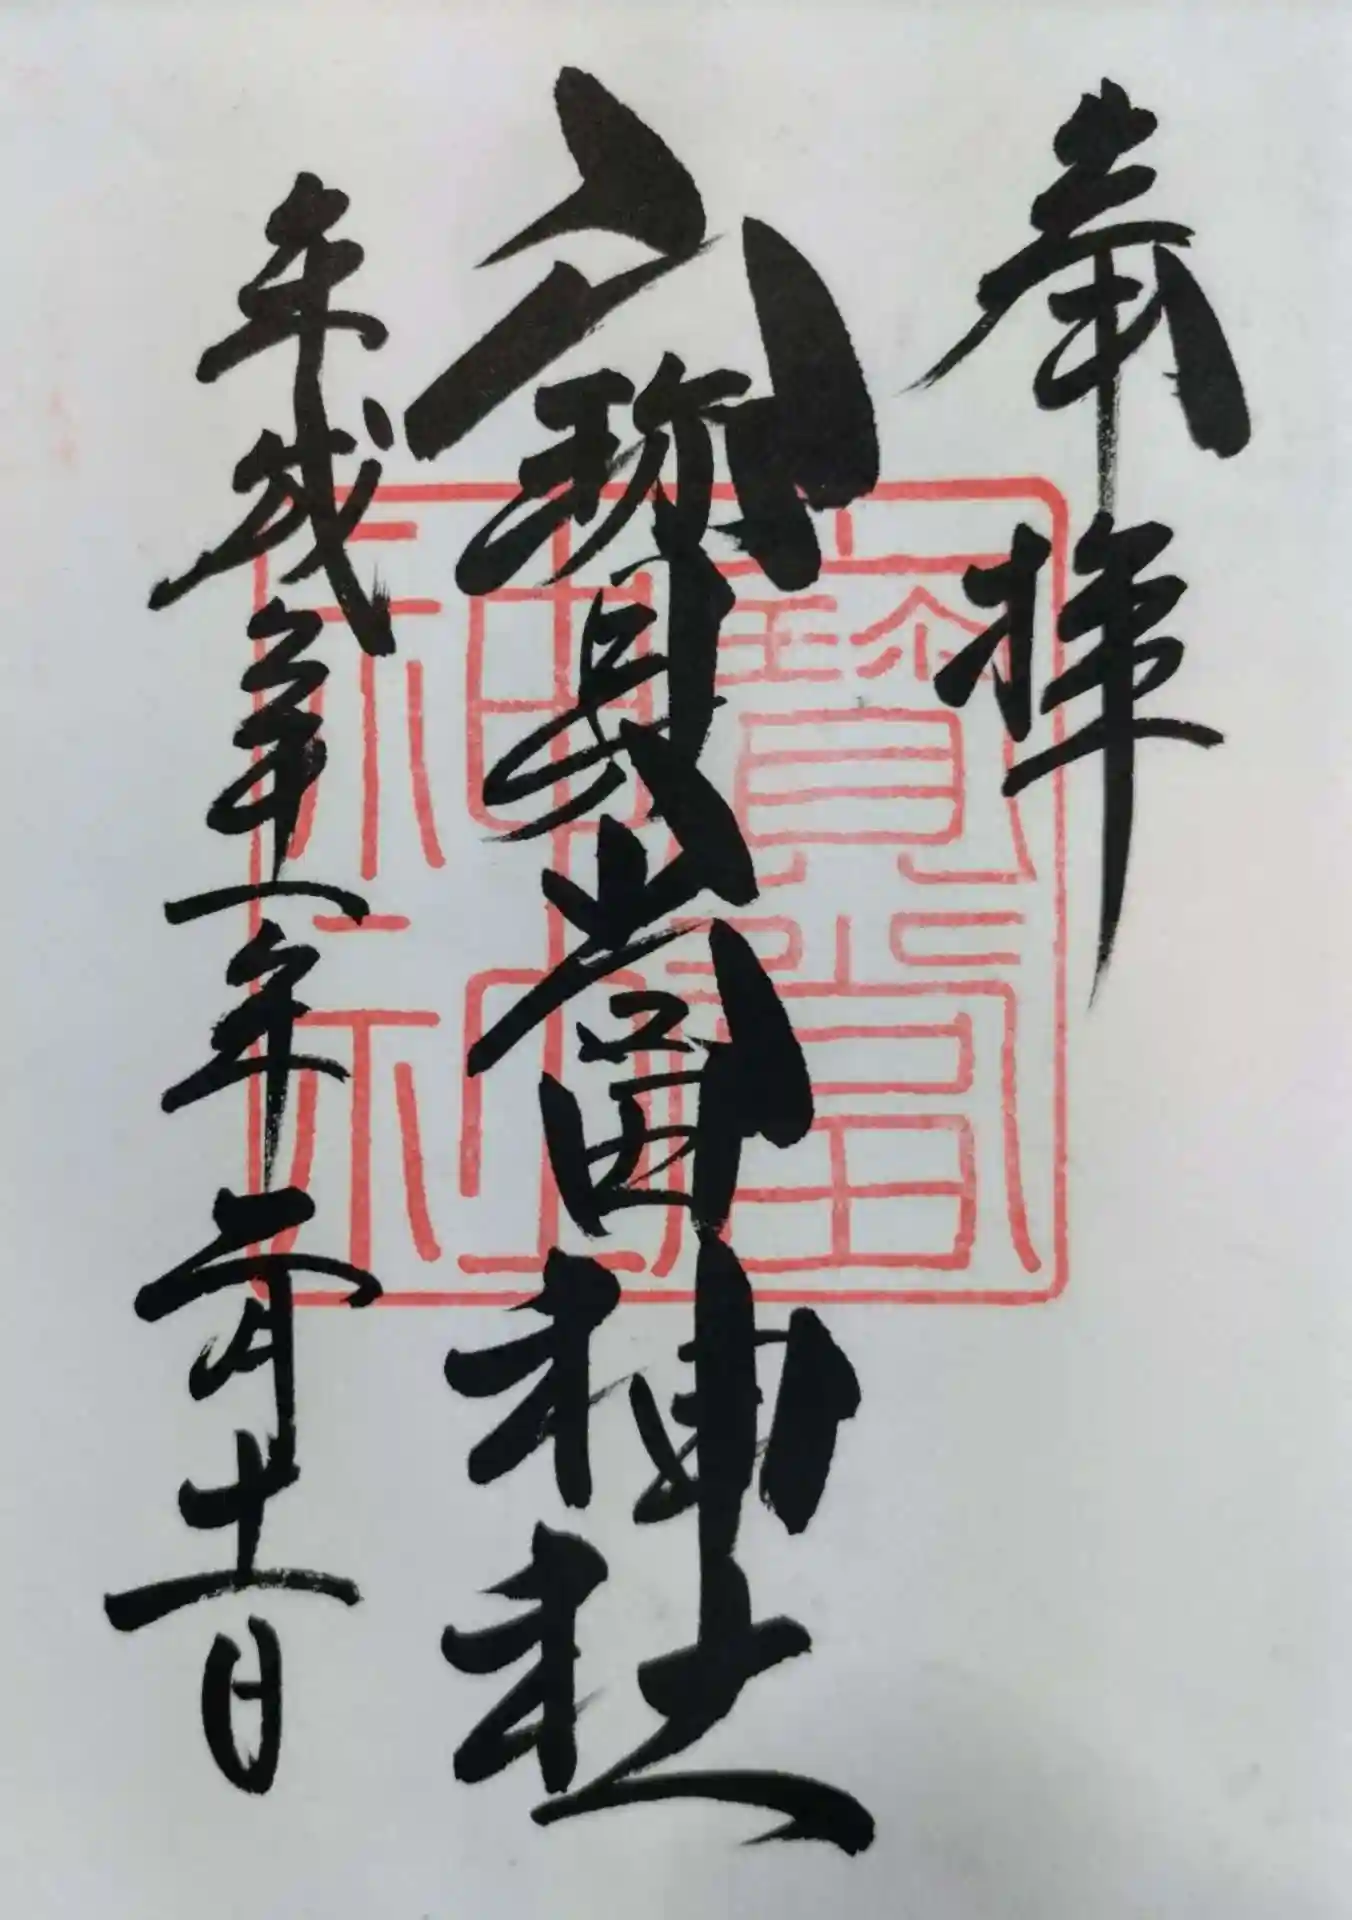 奉拝
寳當神社
平成三十一年二月十一日
寳當
神社